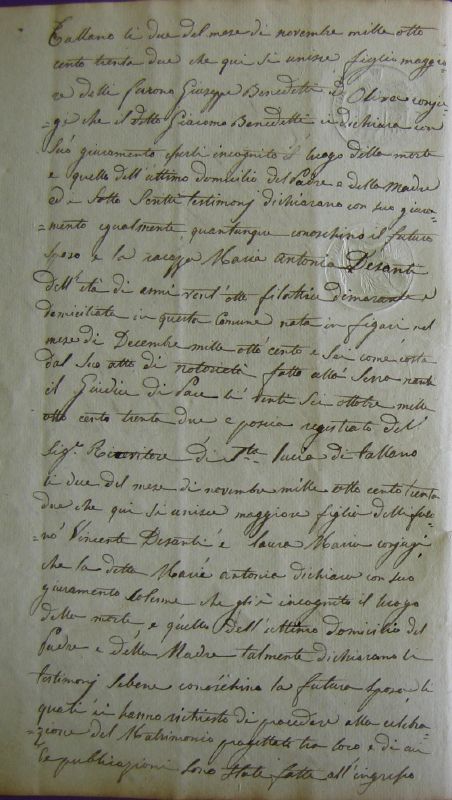 Tallano li due del mese di novembre mille otto
cento trenta due che qui si unisce figlio maggio-
re delli furono Giuseppe Benedetti ed Oliva conju-
=gi che il detto Giacomo Benedetti ci dichiara con
suo giuramento esserli incognito il luogo della morte
e quello dell'ultimo domicilio del Padre e della Madre
ed i sotto scritti testimonj dichiarano con suo giura=
=mento egualmente quantunque conoschino il futuro
sposo e la ragazza Maria Antonia Desanti
dell'età di anni vent'otto filatrice dimorante e
domiciliata in questa Comune nata in figari nel
mese di Decembre mille otto cento e sei come costa
dal suo atto di notorietà fatto alla Serra nanti
il Giudice di Pace li venti sei ottobre mille
otto cento trenta due e poscia registrato del
Sigr. Ricevitore di Sta. Lucia di Tallano
li due del mese di novembre mille otto cento trenta
due che qui si unisce maggiore figlia delli furo=
=no Vincente Desanti e Laura Maria conjugi
che la detta Maria Antonia dichiara con suo
giuramento solenne che gli è incognito il luogo
della morte e quello dell'ultimo domicilio del
Padre e della Madre talmente dichiarano li
testimonj sebene conoschino la futura sposa li
quali ci hanno richiesto di procedere alla celebra=
=zione del Matrimonio progettato tra loro e di cui
le publicazioni sono state fatte all'ingresso